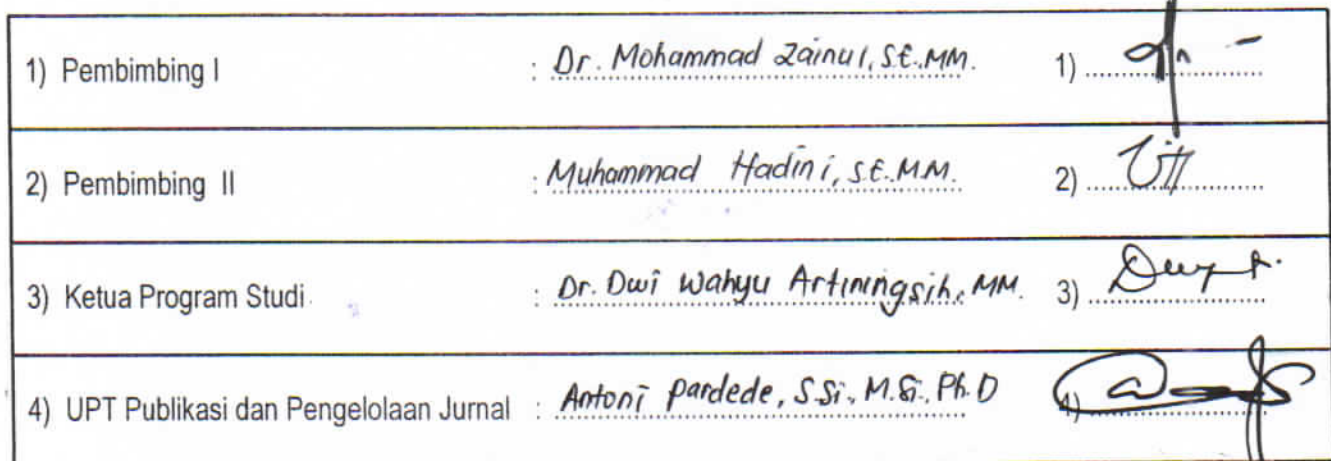 1) Pembimbing I : Dr. Mohammad Zainul, S.E., MM. 1)
2) Pembimbing II : Muhammad Hadini, S.E., M.M. 2)
3) Ketua Program Studi : Dr. Dwi Wahyu Artiningsih, MM. 3)
4) UPT Publikasi dan Pengelolaan Jurnal : Antoni Pardede, S.Si., M.Si., Ph.D 4)